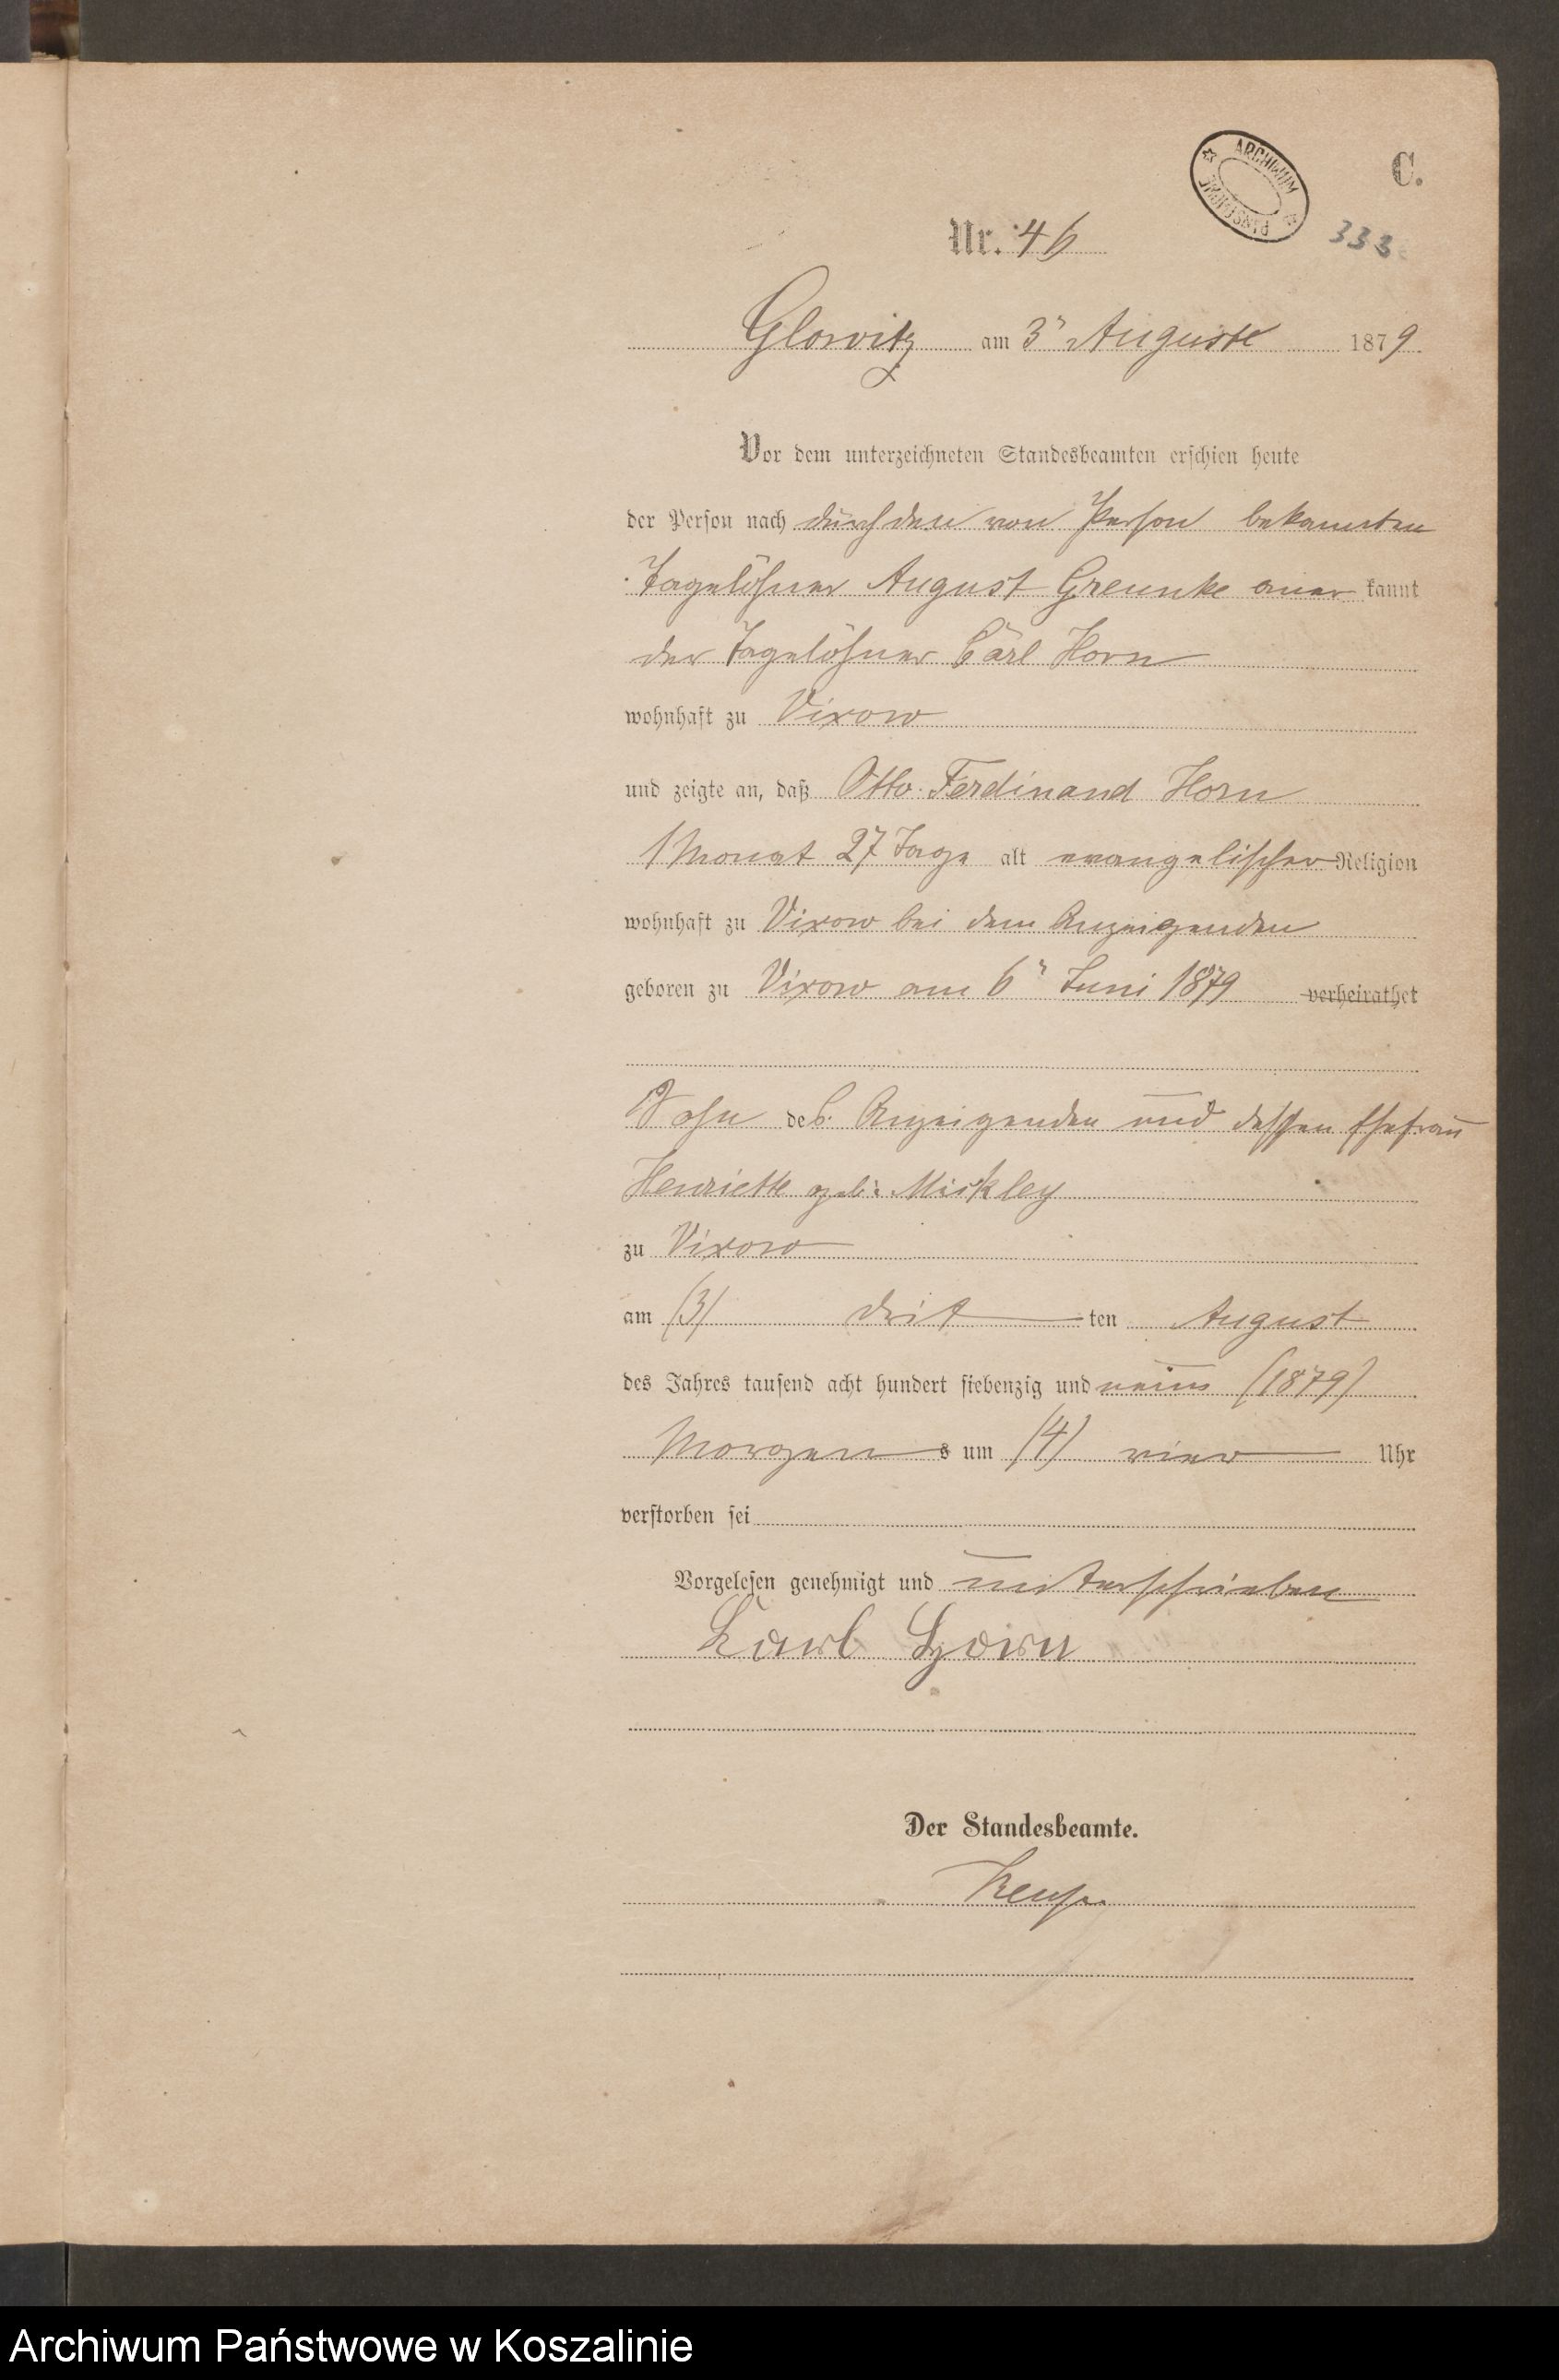 C.
ARCHIWUM PAŃSTWOWE
333
Nr. 46
Glowitz am 3ᵗ Auguste 1879
Vor dem unterzeichneten Standesbeamten erschien heute
der Person nach durch den von Person bekannten
Tagelöhner August Greunke aner kannt
der Tagelöhner Carl Horn
wohnhaft zu Vixow
und zeigte an, daß Otto Ferdinand Horn
1 Monat 27 Tage alt evangelischer Religion
wohnhaft zu Vixow bei dem Anzeigenden
geboren zu Vixow am 6ᵗ Juni 1879 verheirathet
Sohn des Anzeigenden und dessen Ehefrau
Henriette geb: Mickley
zu Vixow
am (3) drit ten August
des Jahres tausend acht hundert siebenzig und neun (1879)
Morgen s um (4) vier Uhr
verstorben sei
Vorgelesen genehmigt und unterschrieben
Karl Horn
Der Standesbeamte.
Archiwum Państwowe w Koszalinie